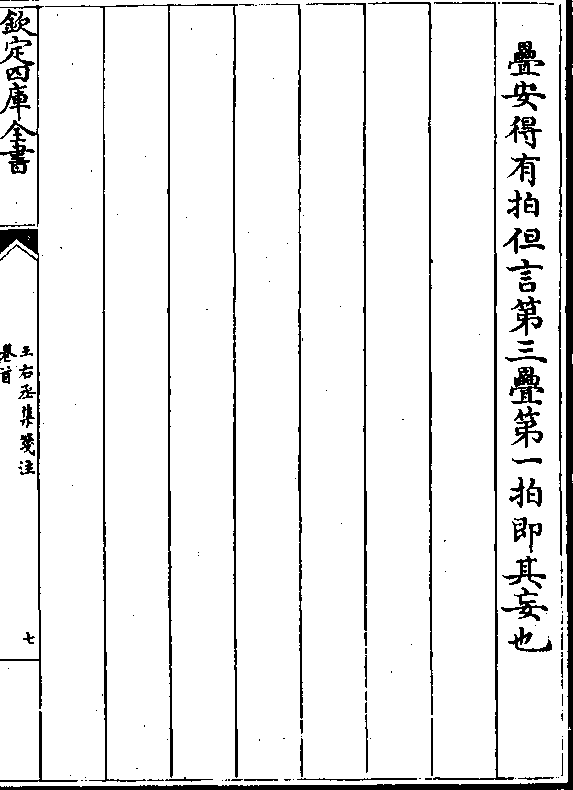 疊安得有拍但言第三疊第一拍即其妄也
欽定四庫全書
王右丞集箋注
卷首
七